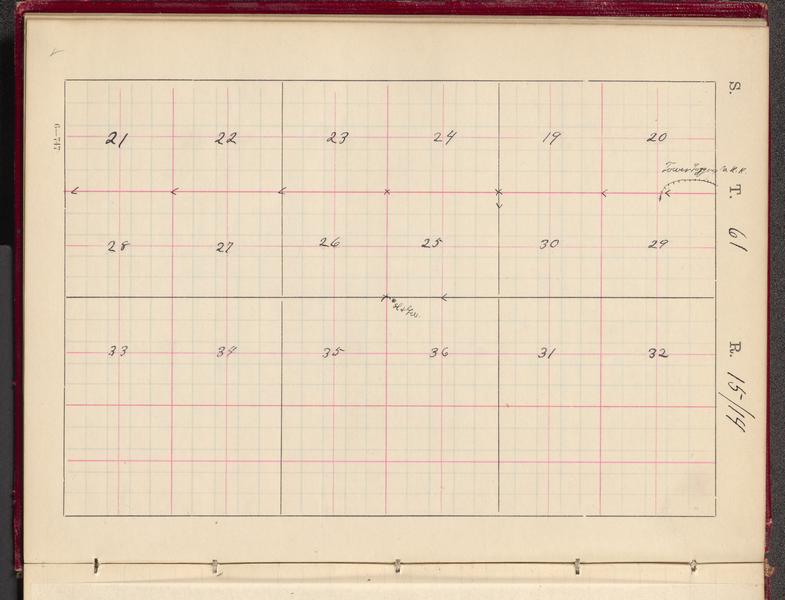 6—747
21 22 23 24 19 20
R.R.
28 27 26 25 30 29
33 34 35 36 31 32
S.
T. 61
R. 15/14